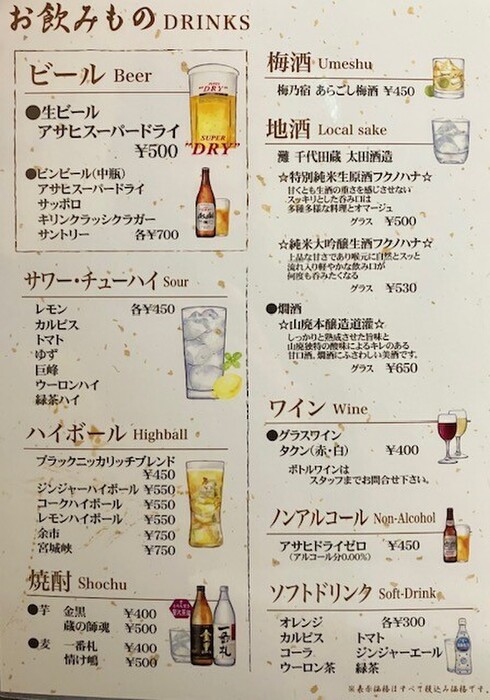 お飲みもの DRINKS
ビール Beer
●生ビール
アサヒスーパードライ
¥500
SUPER "DRY"
●ビンビール(中瓶)
アサヒスーパードライ
サッポロ
キリンクラッシックラガー
サントリー 各¥700
サワー・チューハイ Sour
レモン 各¥450
カルピス
トマト
ゆず
巨峰
ウーロンハイ
緑茶ハイ
ハイボール Highball
ブラックニッカリッチブレンド
¥450
ジンジャーハイボール ¥550
コークハイボール ¥550
レモンハイボール ¥550
余市 ¥750
宮城峡 ¥750
焼酎 Shochu
●芋 金黒 ¥400
蔵の師魂 ¥500
●麦 一番札 ¥400
情け嶋 ¥500
梅酒 Umeshu
梅乃宿 あらごし梅酒 ¥450
地酒 Local sake
灘 千代田蔵 太田酒造
☆特別純米生原酒フクノハナ☆
甘くとも生酒の重さを感じさせない
スッキリとした呑み口は
多種多様な料理とオマージュ
グラス ¥500
☆純米大吟醸生酒フクノハナ☆
上品な甘さであり喉元に自然とスッと
流れ入り軽やかな飲み口が
何度も呑みたくなる
グラス ¥530
●燗酒
☆山廃本醸造道灌☆
しっかりと熟成させた旨味と
山廃独特の酸味によるキレのある
甘口酒。燗酒にふさわしい美酒です。
グラス ¥650
ワイン Wine
●グラスワイン
タクン(赤・白) ¥400
ボトルワインは
スタッフまでお問合せ下さい。
ノンアルコール Non-Alcohol
アサヒドライゼロ ¥450
(アルコール分0.00%)
ソフトドリンク Soft-Drink
オレンジ 各¥300
カルピス トマト
コーラ ジンジャーエール
ウーロン茶 緑茶
※表示価格はすべて税込み価格です。